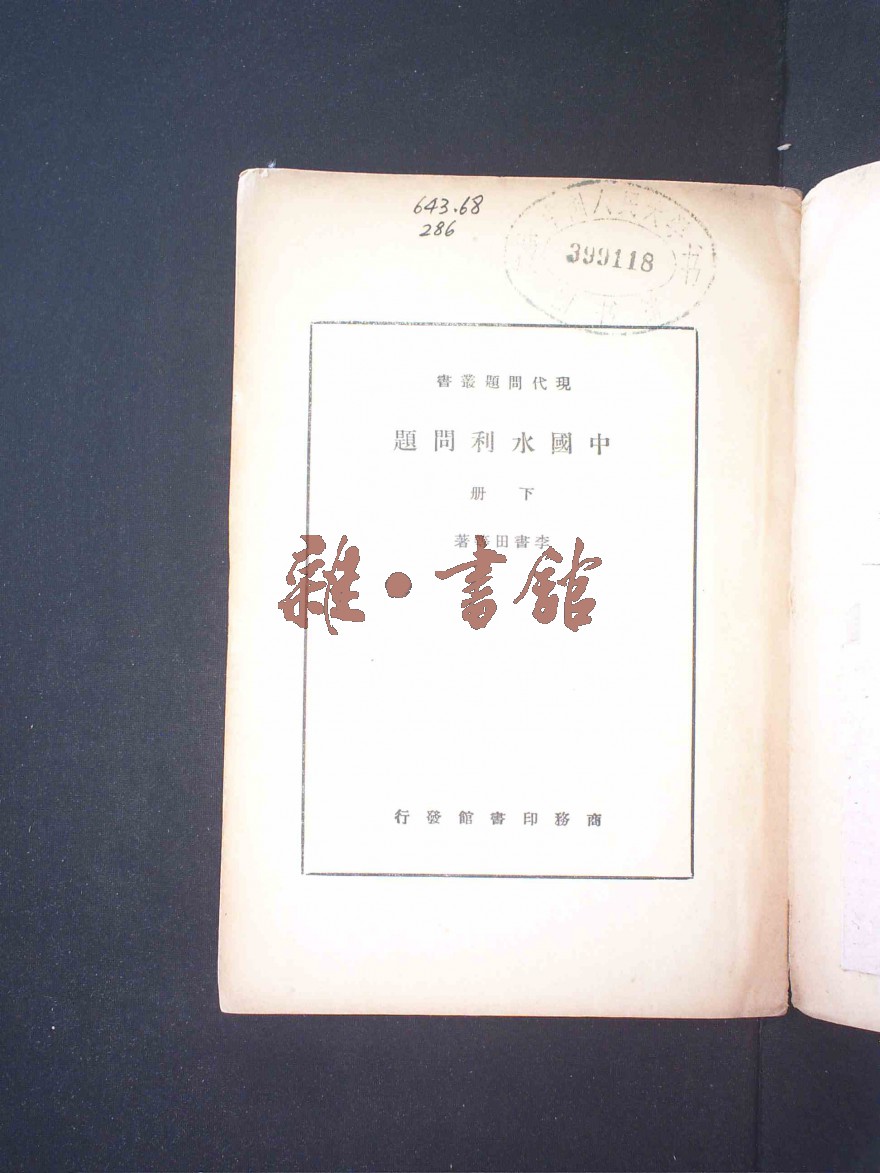 643.68
286
399118
現代問題叢書
中國水利問題
下册
李書田等著
雜·書館
商務印書館發行